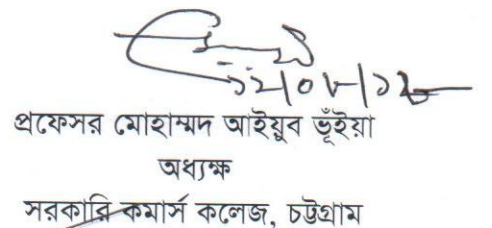 প্রফেসর মোহাম্মদ আইয়ুব ভূঁইয়া
অধ্যক্ষ
সরকারি কমার্স কলেজ, চট্টগ্রাম